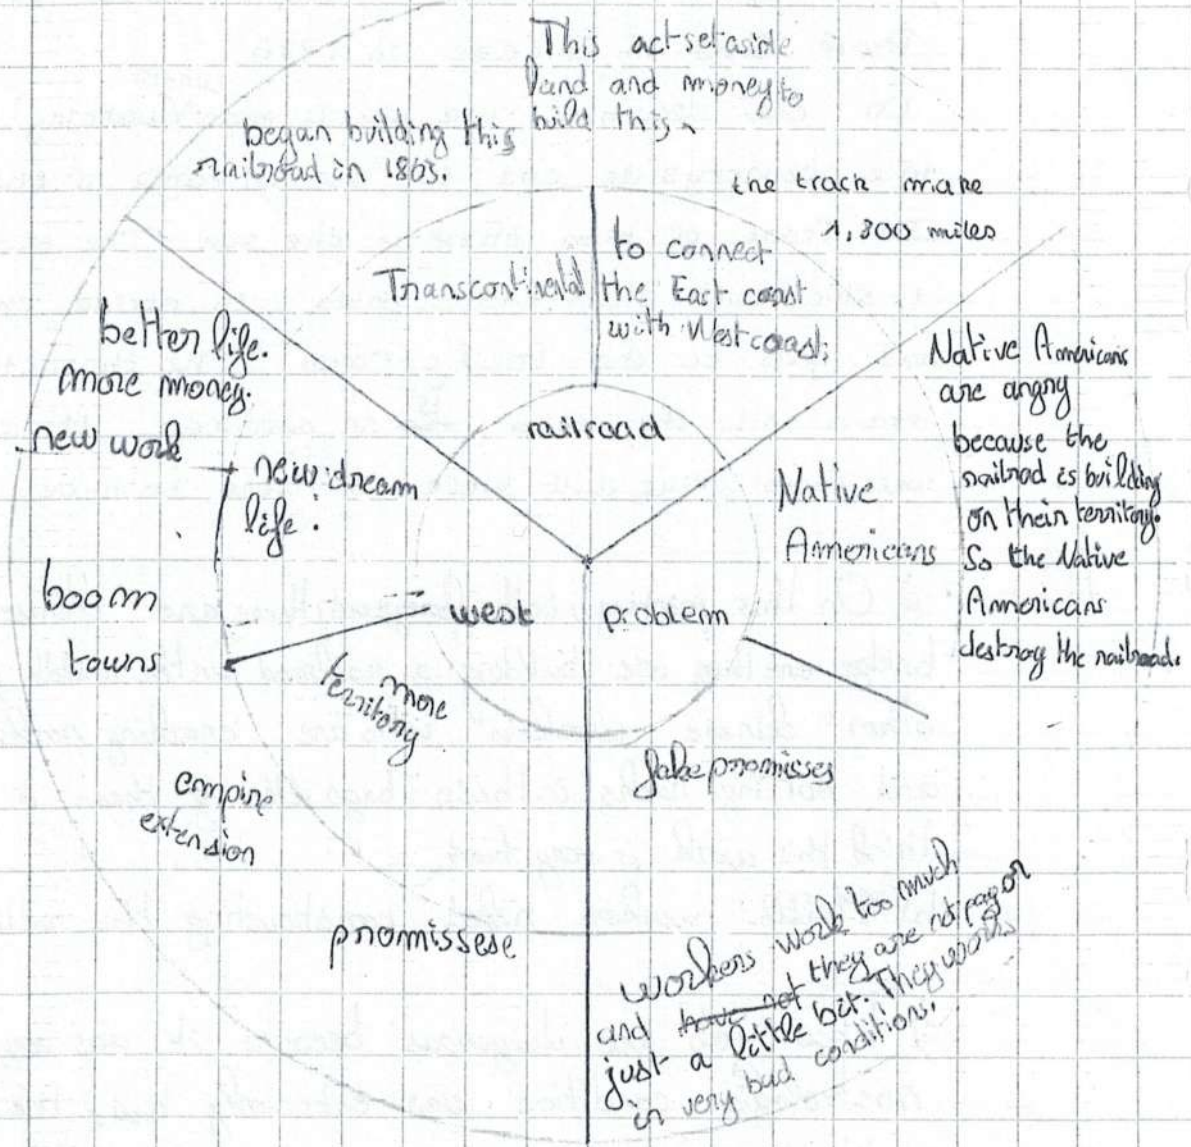 This act set aside
land and money to
build this.
began building this
railroad in 1863.
the track make
1,800 miles
Transcontinental
to connect
the East coast
with West coast.
railroad
better life.
more money.
new work
new dream
life.
boom
towns
west
more
territory
empire
extension
promissese
Native
Americans
problem
Native Americans
are angry
because the
railroad is building
on their territory.
So the Native
Americans
destroy the railroad.
fake promisses
workers work too much
and have not they are not pay or
just a little bit. They works
in very bad conditions.